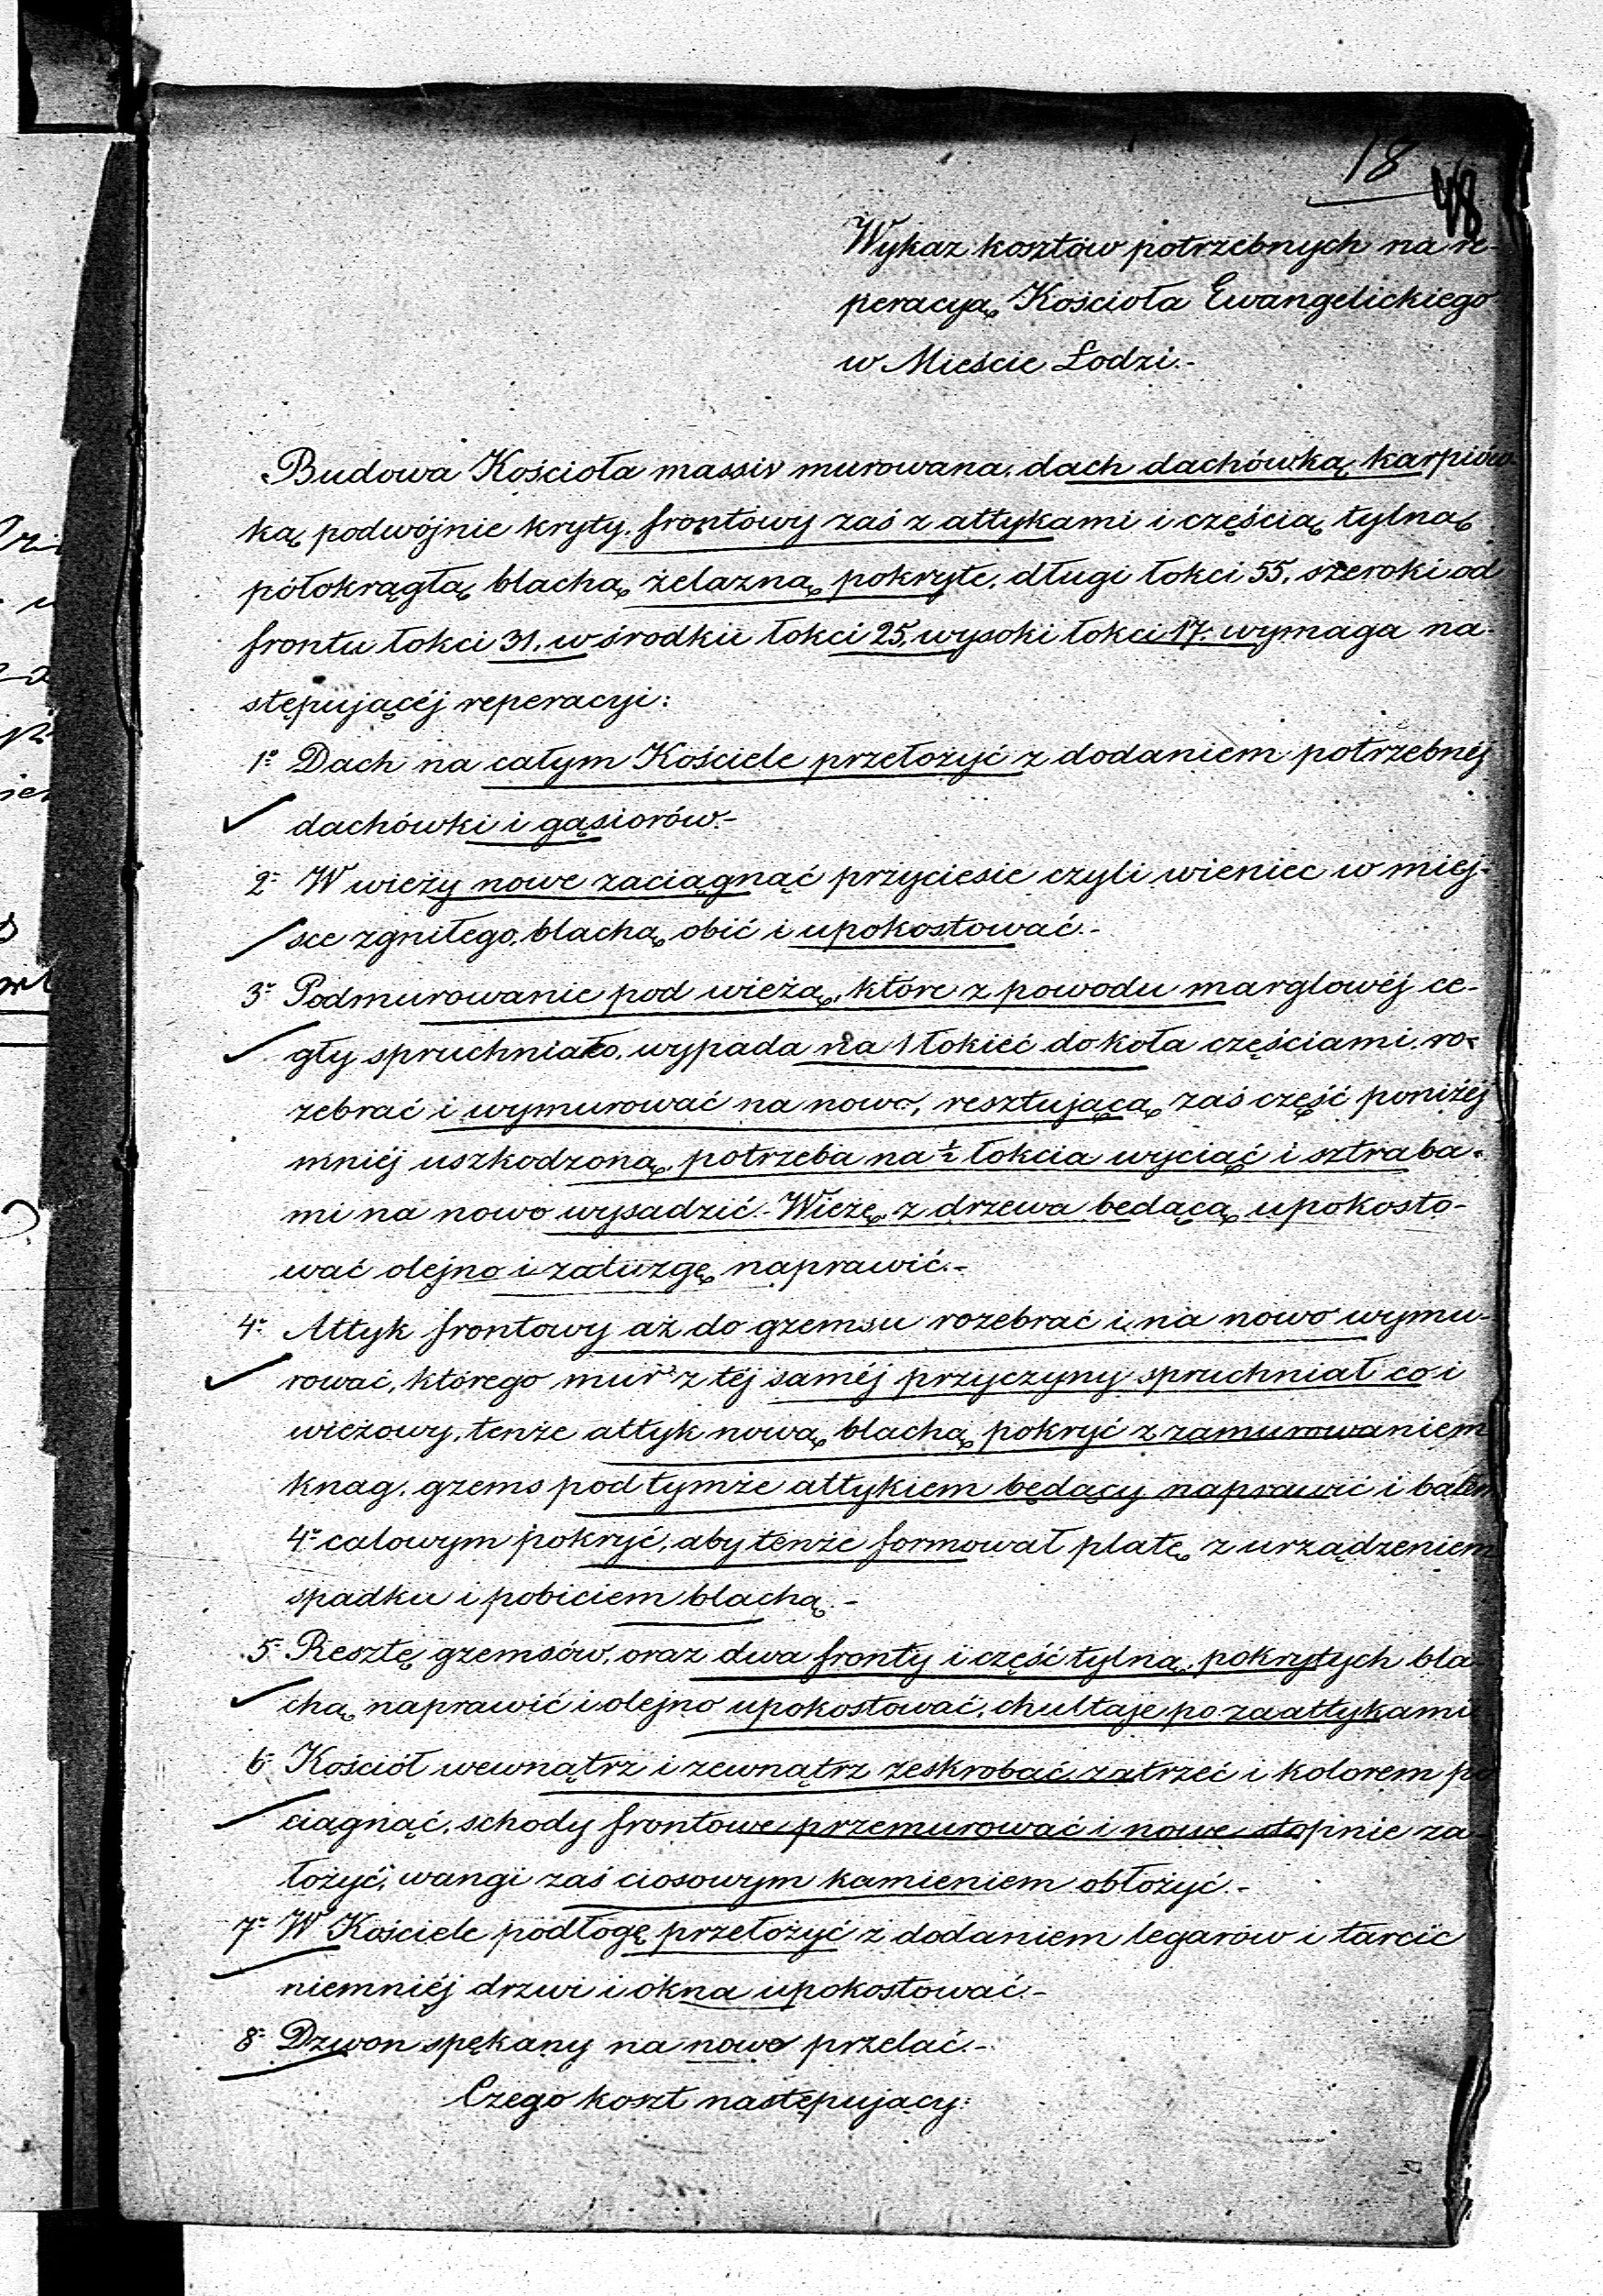 18
48
Wykaz kosztów potrzebnych na re-
peracyą Kościoła Ewangelickiego
w Mieście Łodzi.-
Budowa Kościoła massiv murowana, dach dachówką karpiów-
ką podwójnie kryty, frontowy zaś z attykami i częścią tylną
półokrągłą blachą żelazną pokryte, długi łokci 55, szeroki od
frontu łokci 31, w środku łokci 25, wysoki łokci 17. wymaga na-
stępującéj reperacyi:
1o Dach na całym Kościele przełożyć z dodaniem potrzebnéj
dachówki i gąsiorów.-
2o W wieży nowe zaciągnąć przyciesie czyli wieniec w miej-
sce zgniłego, blachą obić i upokostować.-
3o Podmurowanie pod wieżą, które z powodu marglowéj ce-
gły spruchniało, wypada na 1 łokieć do koła częściami ro-
zebrać i wymurować na nowo, resztującą zaś część poniżéj
mniéj uszkodzoną, potrzeba na ½ łokcia wyciąć i sztraba-
mi na nowo wysadzić.- Wieżę z drzewa będącą upokosto-
wać olejno i żaluzgę naprawić.-
4o Attyk frontowy aż do gzemsu rozebrać i na nowo wymu-
rować, którego mur z téj saméj przyczyny spruchniał co i
wieżowy, tenże attyk nową blachą pokryć z zamurowaniem
knag, gzems pod tymże attykiem będący naprawić i balem
4o calowym pokryć, aby tenże formował platę z urządzeniem
spadku i pobiciem blachą.-
5o Resztę gzemsów, oraz dwa fronty i część tylną, pokrytych bla-
chą naprawić i olejno upokostować, chultaje po za attykami
6o Kościół wewnątrz i zewnątrz zeskrobać, zatrzeć i kolorem po
ciągnąć, schody frontowe przemurować i nowe stopnie za-
łożyć, wangi zaś ciosowym kamieniem obłożyć.-
7o W Kościele podłogę przełożyć z dodaniem legarów i tarcic
niemniéj drzwi i okna upokostować.-
8o Dzwon spękany na nowo przelać.-
Czego koszt następujący: